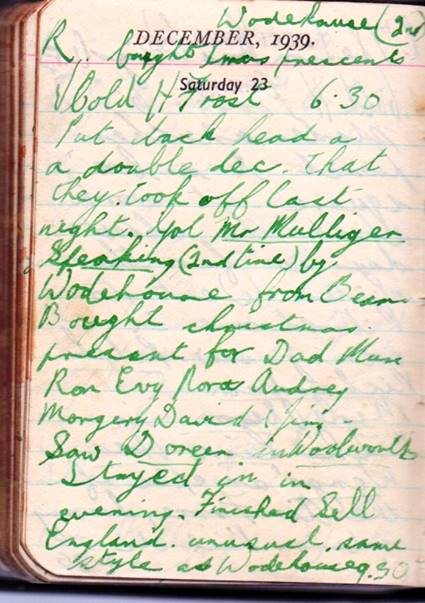 Wodehouse (2nd
R. bought Xmas presents
DECEMBER, 1939.
Saturday 23
V Cold H Frost 6.30
Put back head a
a double dec. that
they took off last
night. Got Mr Mulliner
Speaking (2nd time) by
Wodehouse from Beans
Bought christmas
present for Dad Mum
Ron Evy Nora Audrey
Margery David & Jim -
Saw Doreen in Woolworth
Stayed in in
evening. Finished Sell
England. unusual. same
style as Wodehouse 9.30